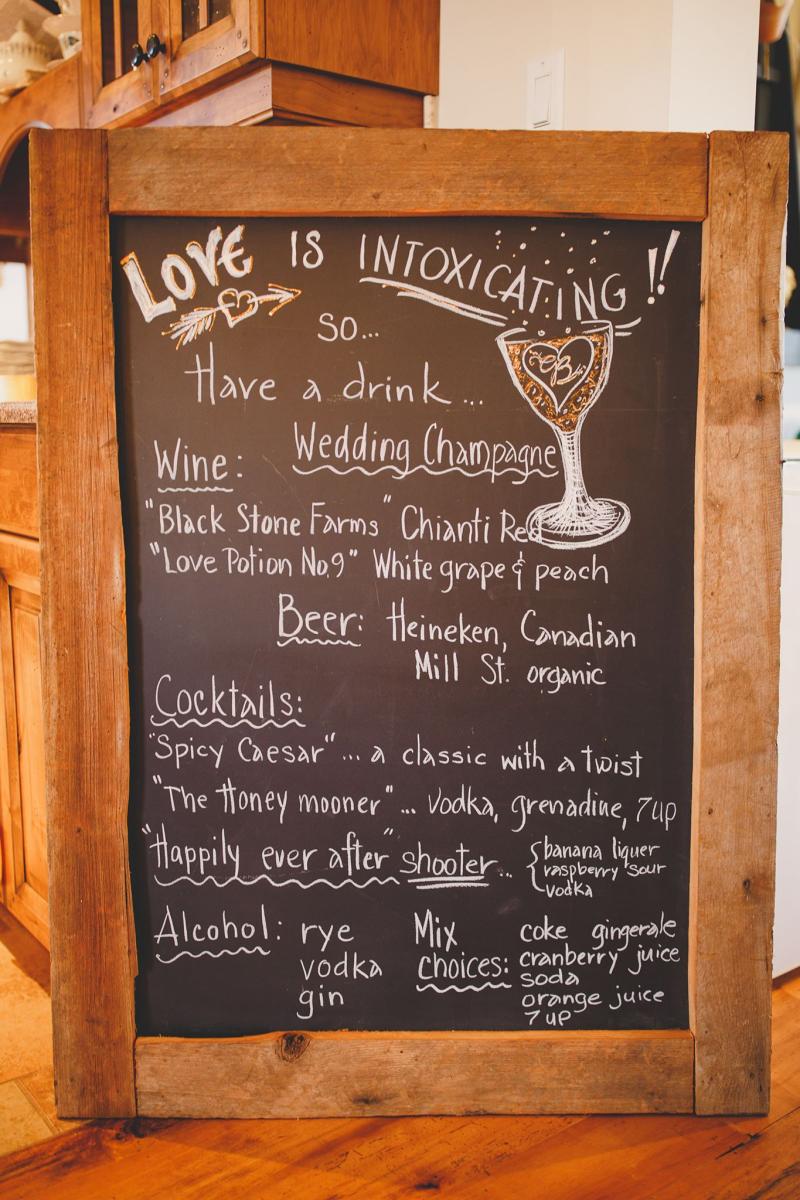 LOVE IS INTOXICATING!!
SO...
Have a drink...
Wine: Wedding Champagne
"Black Stone Farms" Chianti Red
"Love Potion No.9" White grape & peach
Beer: Heineken, Canadian
Mill St. organic
Cocktails:
"Spicy Caesar"... a classic with a twist
"The Honey mooner"... vodka, grenadine, 7up
"Happily ever after" shooter... {banana liquer
raspberry sour
vodka
Alcohol: rye
vodka
gin
Mix
choices:
coke gingerale
cranberry juice
soda
orange juice
7up